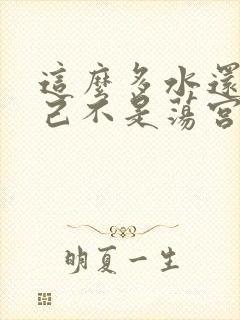 這麼多水還
己不是蕩宮
明夏一生